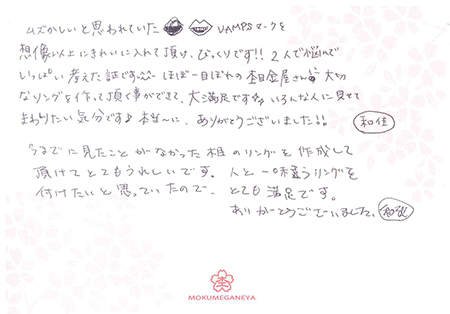 ムズかしいと思われていた VAMPSマークを
想像以上にきれいに入れて頂け、びっくりです!! 2人で悩んで
いっぱい考えた証です^^ ほぼ一目ぼれの杢目金屋さんで 大切
なリングを作って頂く事ができて、大満足です いろんな人に見せて
まわりたい気分です♪ 本当〜に、ありがとうございました!!
和佳
今までに見たことがなかった木目のリングを作成して
頂けてとてもうれしいです。人と一味違うリングを
付けたいと思っていたので、とても満足です。
ありがとうございました。
MOKUMEGANEYA